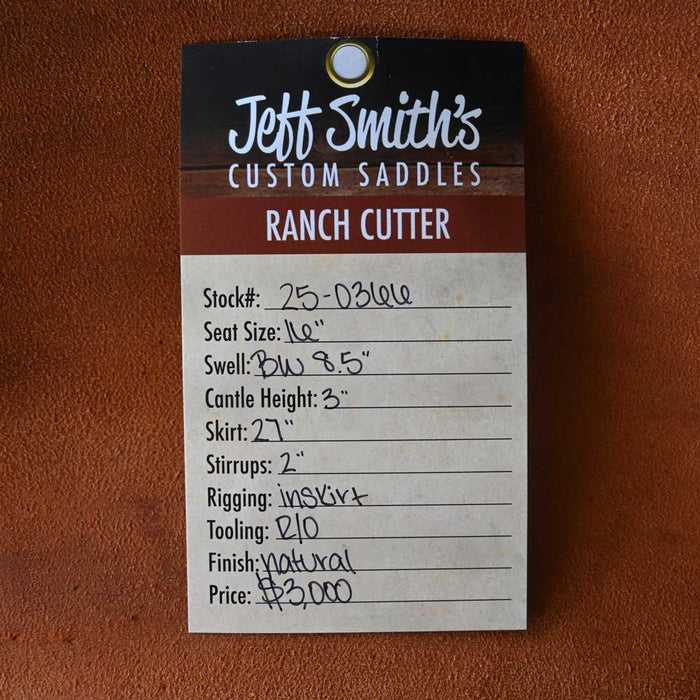 Jeff Smith's
CUSTOM SADDLES
RANCH CUTTER
Stock#: 25-0366
Seat Size: 16"
Swell: BW 8.5"
Cantle Height: 3"
Skirt: 27"
Stirrups: 2"
Rigging: inskirt
Tooling: R/O
Finish: natural
Price: $3,000